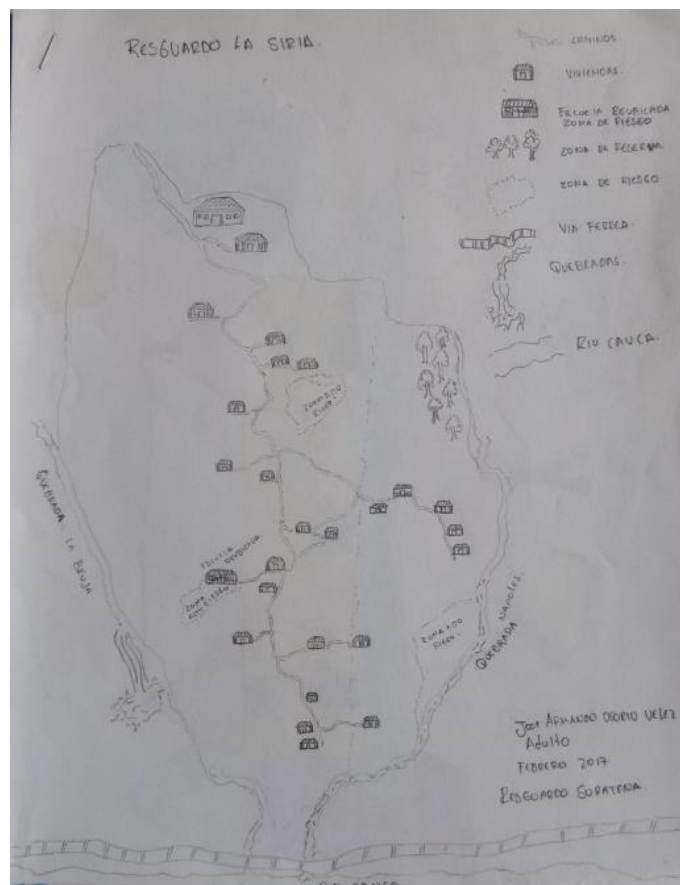 RESGUARDO LA SIRIA.
CAMINOS
VIVIENDAS.
ESCUELA REUBICADA
ZONA DE RIESGO
ZONA DE RESERVA
ZONA DE RIESGO
VIA FERREA.
QUEBRADAS.
RIO CAUCA.
ZONA ALTO
RIESGO
QUEBRADA LA BRUJA
ESCUELA
REUBICADA
ZONA
ALTO RIESGO
ZONA ALTO
RIESGO.
QUEBRADA
JOSE ARMANDO OSORIO VELEZ
Adulto
FEBRERO 2017
RESGUARDO SURATENA
RIO CAUCA